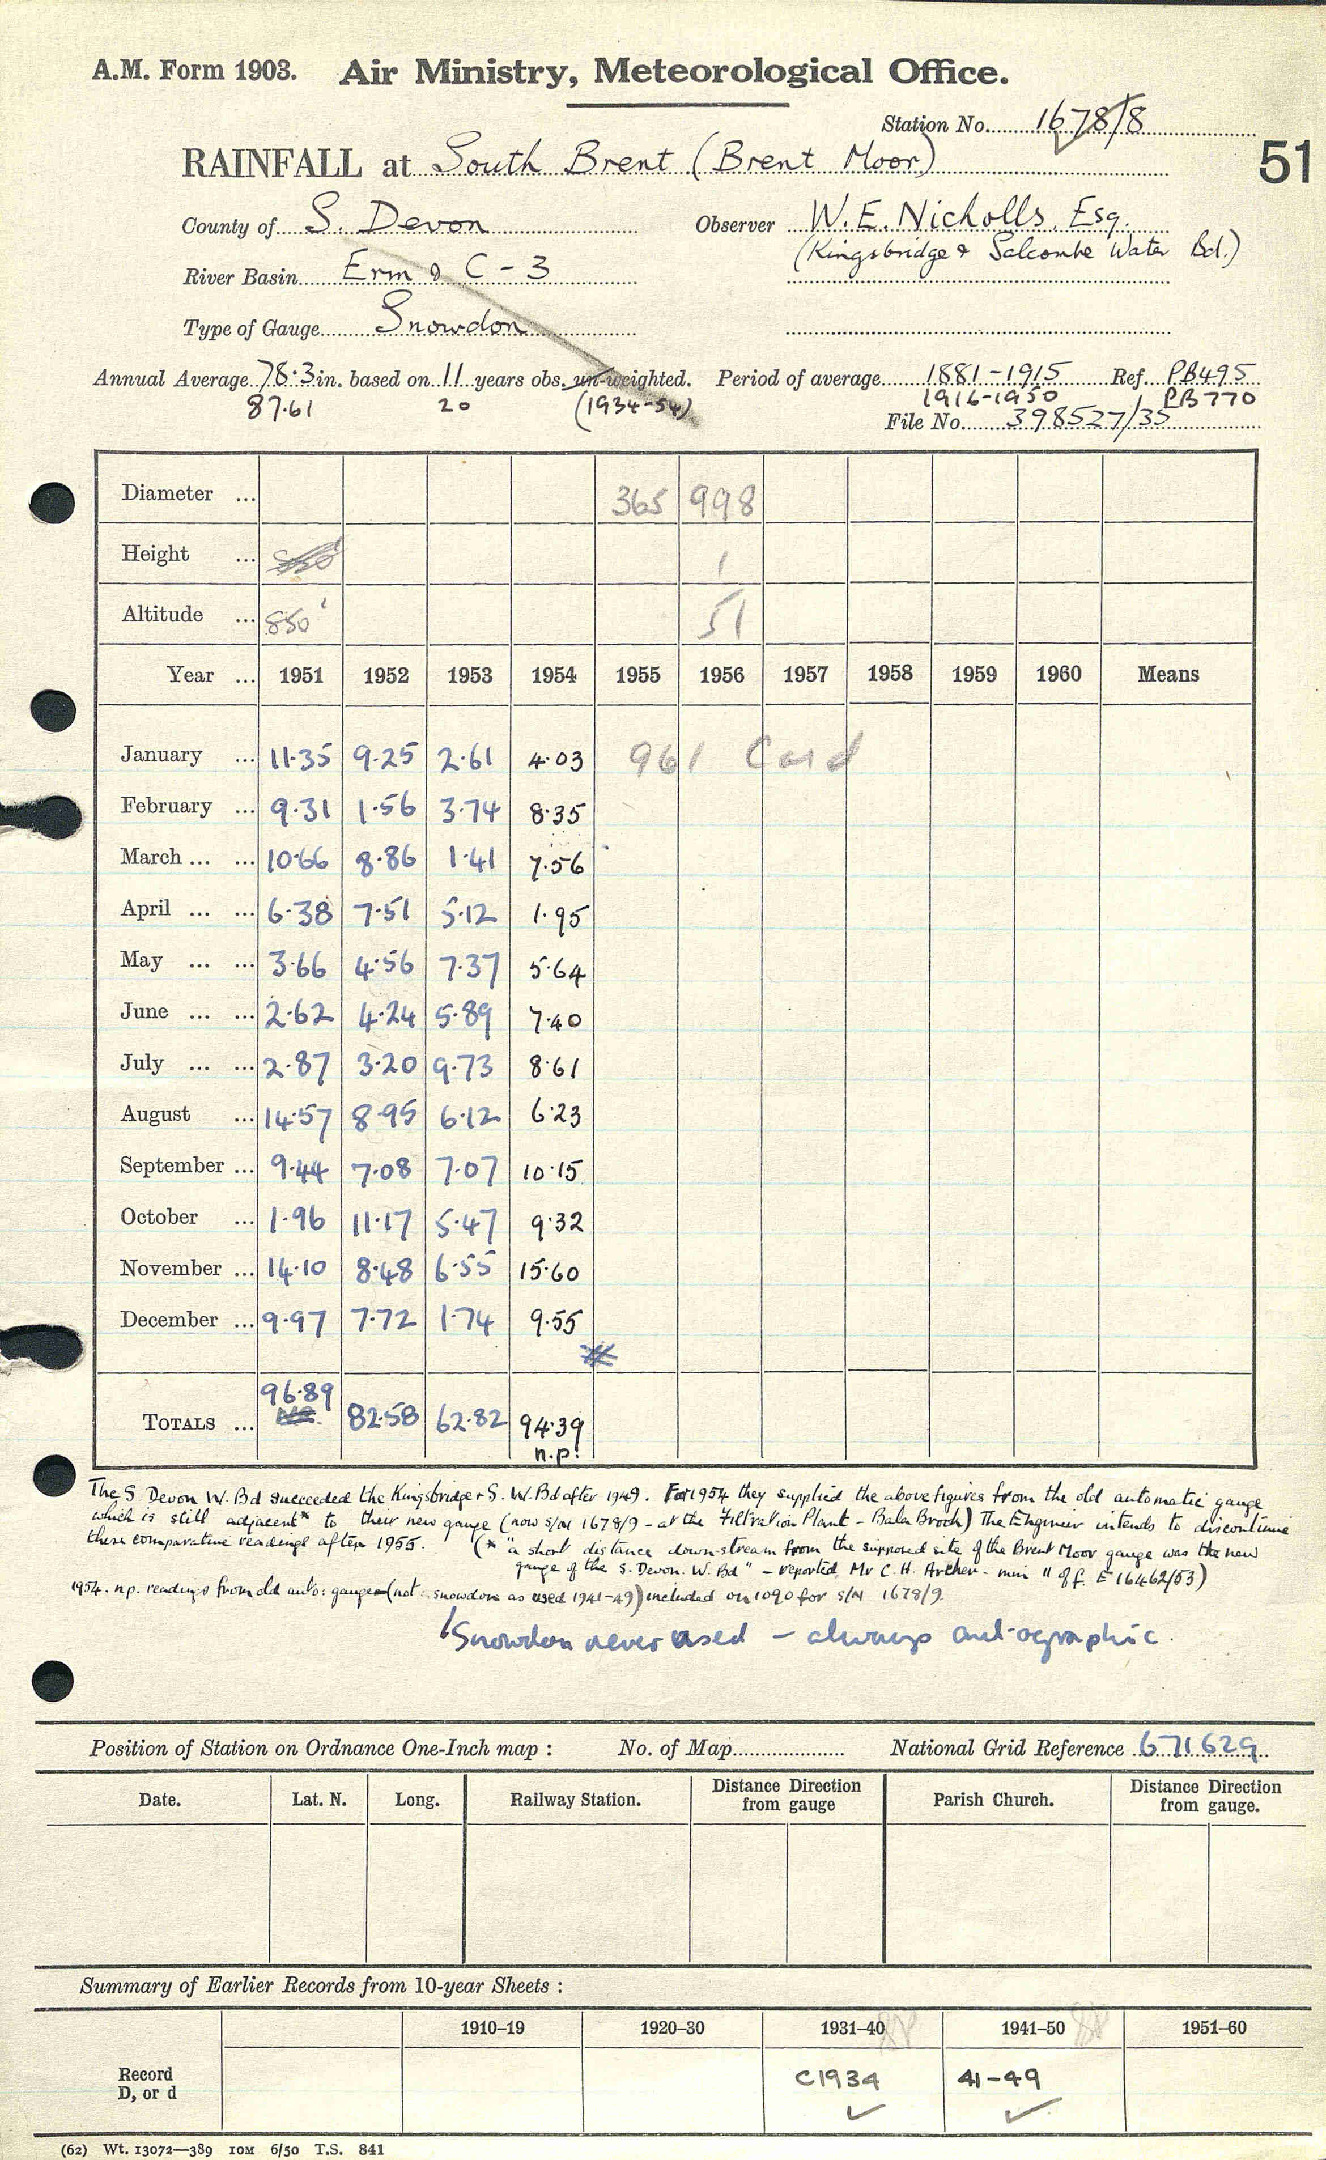 A.M. Form 1903. Air Ministry, Meteorological Office.
Station No. 1678/8
RAINFALL at South Brent (Brent Moor)
51
County of S. Devon Observer W.E. Nicholls, Esq.
(Kingsbridge & Salcombe Water Bd.)
River Basin Erm & C-3
Type of Gauge Snowdon
Annual Average 78.3 in. based on 11 years obs. un-weighted. Period of average 1881-1915 Ref. PB495
87.61 20 (1934-54) 1916-1950 PB770
File No. 398527/35
Diameter ... 365 998
Height ... 1
Altitude ... 850' 51
Year ... 1951 1952 1953 1954 1955 1956 1957 1958 1959 1960 Means
January ... 11.35 9.25 2.61 4.03 961 Card
February ... 9.31 1.56 3.74 8.35
March ... ... 10.66 8.86 1.41 7.56
April ... ... 6.38 7.51 5.12 1.95
May ... ... 3.66 4.56 7.37 5.64
June ... ... 2.62 4.24 5.89 7.40
July ... ... 2.87 3.20 9.73 8.61
August ... 14.57 8.95 6.12 6.23
September ... 9.44 7.08 7.07 10.15
October ... 1.96 11.17 5.47 9.32
November ... 14.10 8.48 6.55 15.60
December ... 9.97 7.72 1.74 9.55
TOTALS ... 96.89 82.58 62.82 94.39
n.p.
The S Devon W. Bd succeeded the Kingsbridge + S. W. Bd after 1949. For 1954 they supplied the above figures from the old automatic gauge
which is still adjacent* to their new gauge (now s/n 1678/9 - at the Filtration Plant - Bala Brook) The Engineer intends to discontinue
these comparative readings after 1955. (* "a short distance down-stream from the supposed site of the Brent Moor gauge was the new
gauge of the S. Devon. W. Bd" - reported Mr C. H. Archer - min 11 of f. E 16462/53)
1954. n.p. readings from old auto: gauge (not snowdon as used 1941-49) included on 1090 for s/n 1678/9.
Snowdon never used - always autographic
Position of Station on Ordnance One-Inch map : No. of Map National Grid Reference 671629
Date. Lat. N. Long. Railway Station. Distance Direction from gauge Parish Church. Distance Direction from gauge.
Summary of Earlier Records from 10-year Sheets :
1910–19 1920–30 1931–40 1941–50 1951–60
Record
D, or d C1934 41-49
(62) Wt. 13072—389 10M 6/50 T.S. 841